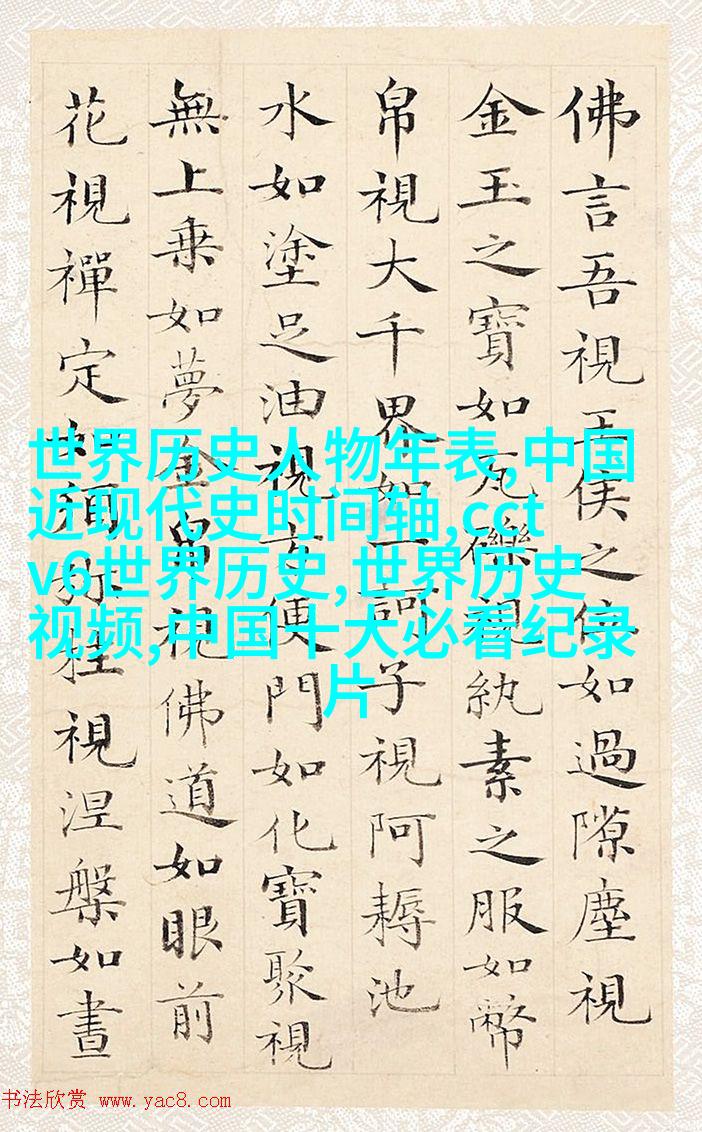 佛言吾視王侯之位如過隙塵視
金玉之寶如瓦礫視紈素之服如幣
帛視大千界如一訶子視阿耨池
水如塗足油視方便門如化寶聚視
無上乗如夢金帛視佛道如眼前
花視禪定如須弥柱視涅槃如晝
世界历史人物年表,中国
近现代史时间轴,cct
v6世界历史,世界历史
视频,中国十大必看纪录
片
书法欣赏 www.yac8.com